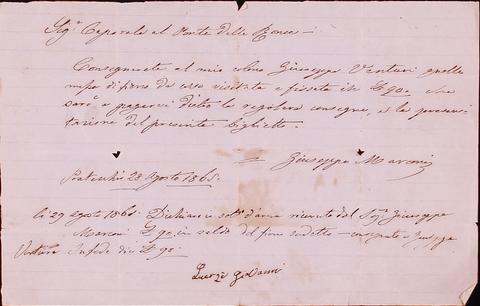 Sigr. Caporale al Ponte delle
Consegnate al mio colono Giuseppe Venturi quella
di fieno da esso visitata e fissata in £ 90. che
sarò a pagarvi dietro la regolare consegna, e la presen-
tazione del presente biglietto.
Giuseppe Marconi
28 Agosto 1865.
li 29 Agosto 1865. Dichiaro io sotto ricevuto dal Sigr. Giuseppe
Marconi £ 90. in saldo del fieno sudetto — consegnato a Giuseppe
Venturi In fede dico £ 90
Giovanni